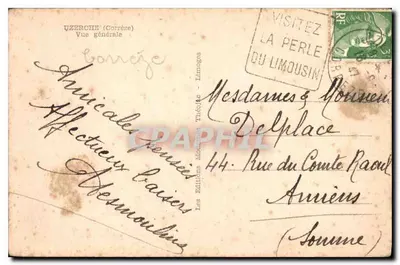 UZERCHE (Corrèze)
Vue générale
Corrèze
VISITEZ
LA PERLE
DU LIMOUSIN
RF
Amicales pensées
Affectueux baisers
Les Editions
Théojac
Limoges
CPAPHIL
Mesdames & Monsieur
Delplace
44. Rue du Comte Raoul
Amiens
(Somme)